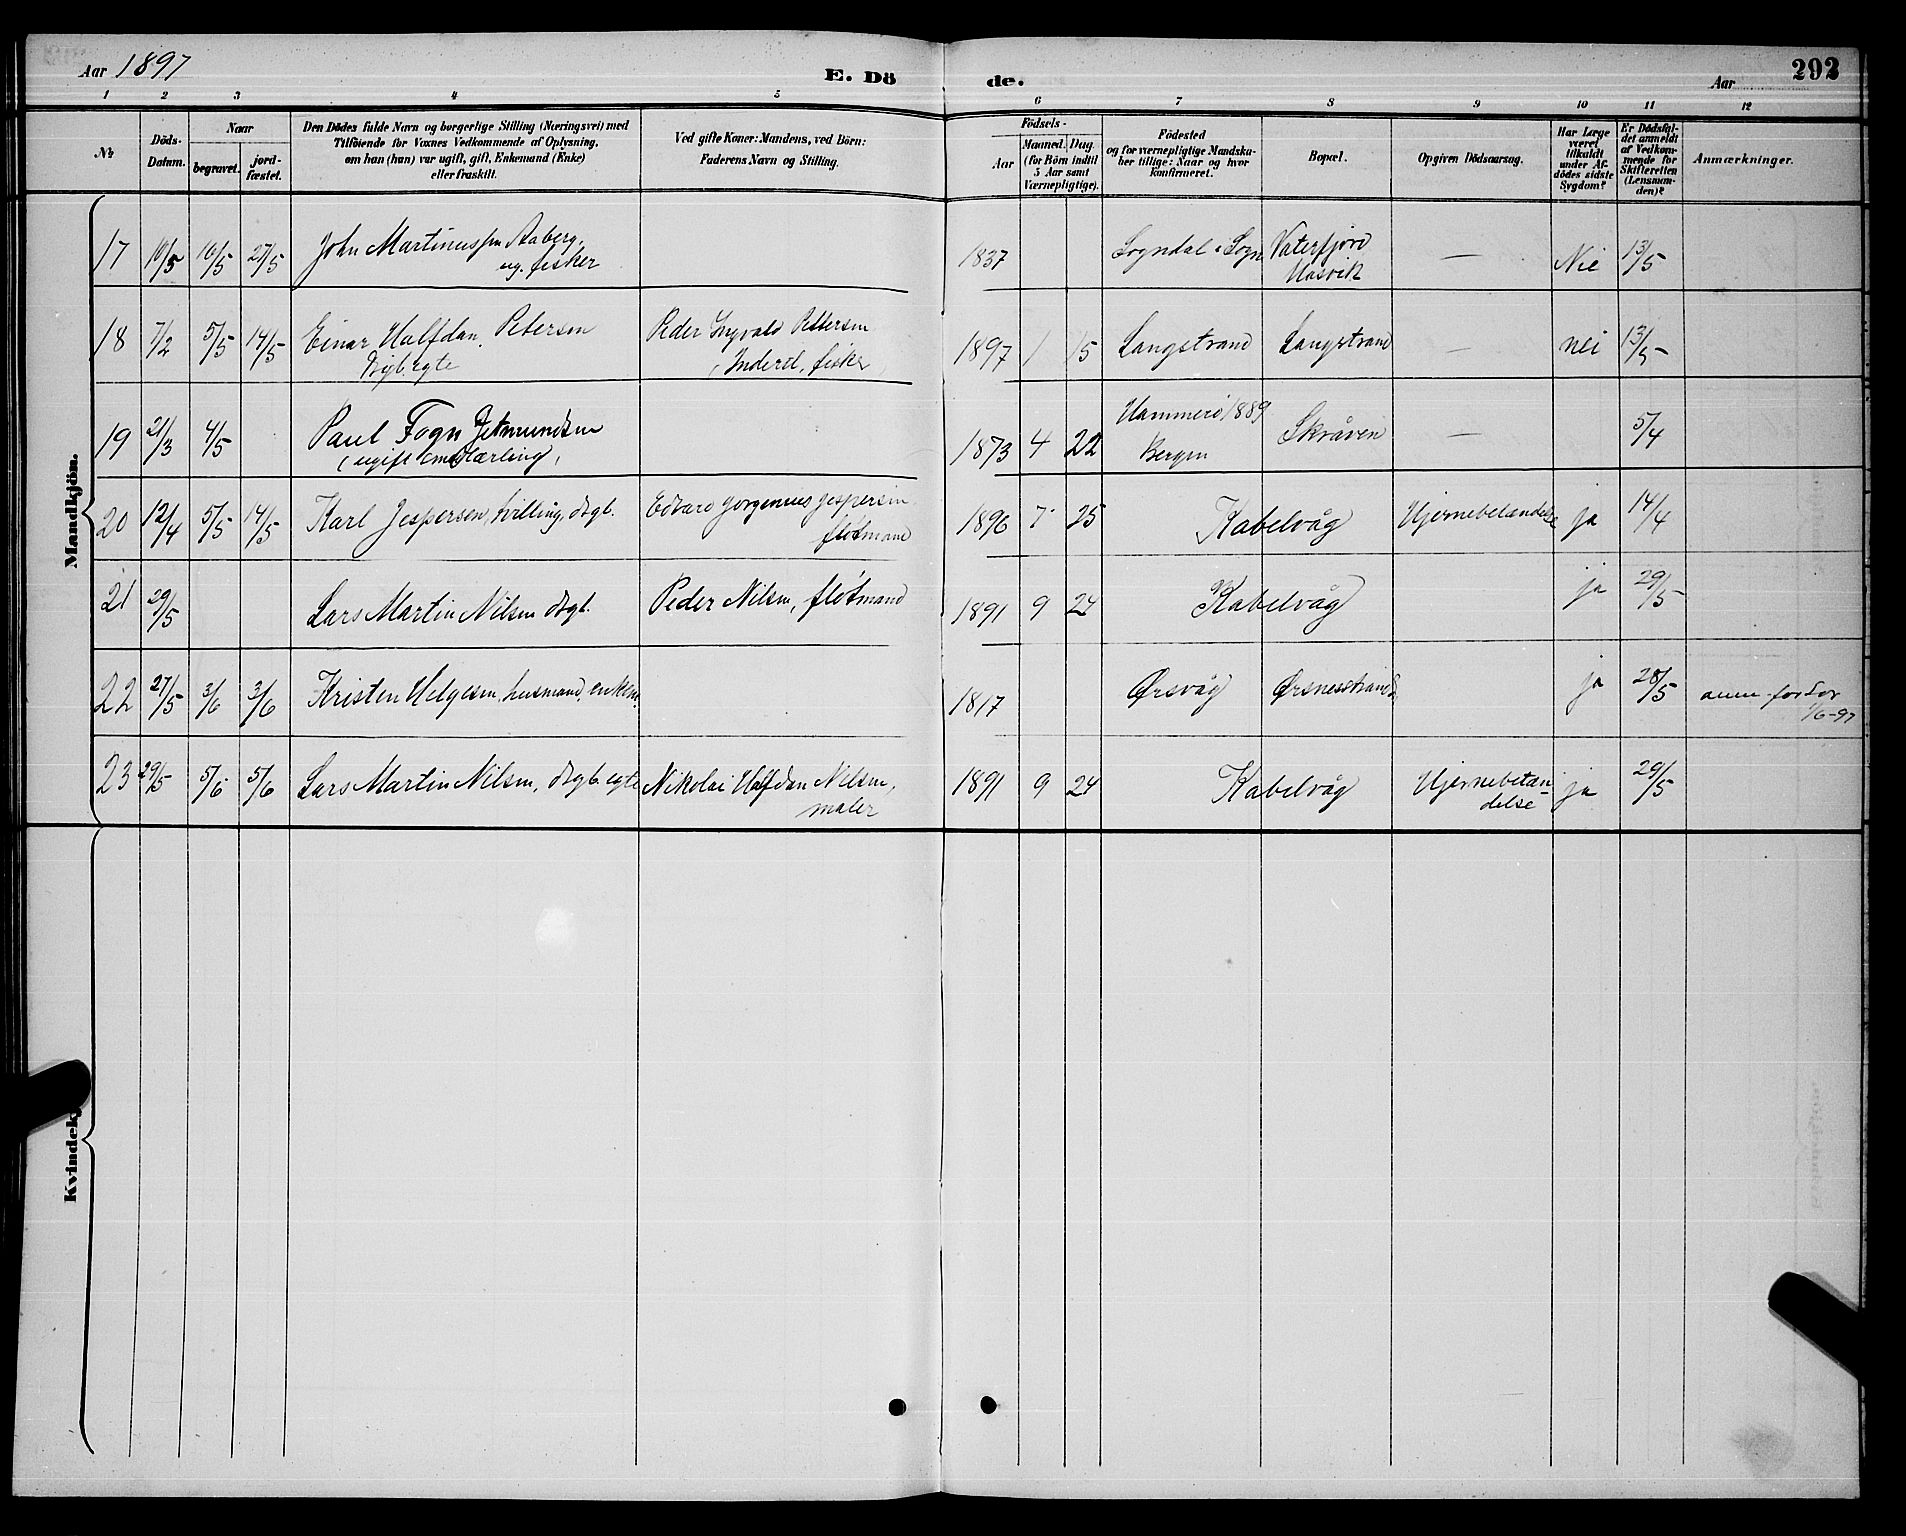 Aar 1897
E. Dö
de.
Aar
292
1 2 3 4 5 6 7 8 9 10 11 12
№
Döds-
Datum.
Naar
begravet.
jord-
fæstet.
Den Dödes fulde Navn og borgerlige Stilling (Næringsvei) med
Tilföiende for Voxnes Vedkommende af Oplysning,
om han (hun) var ugift, gift, Enkemand (Enke)
eller fraskilt.
Ved gifte Koner: Mandens, ved Börn:
Faderens Navn og Stilling.
Födsels-
Aar
Maaned. Dag.
(for Börn indtil
5 Aar samt
Værnepligtige).
Födested
og for værnepligtige Mandska-
ber tillige: Naar og hvor
konfirmeret.
Bopæl.
Opgiven Dödsaarsag.
Har Læge
været
tilkaldt
under Af-
dödes sidste
Sygdom?
Er Dödsfal-
det anmeldt
af Vedkom-
mende for
Skifteretten
(Lensman-
den)?
Anmærkninger.
Mandkjön.
17 10/5 10/5 27/5 John Martinussen Aaberg, 1837 Sogndal i Sogn Vaterfjord — Nei 13/5
ug. fisker
Hasvik
18 7/2 5/5 14/5 Einar Halfdan Petersen Peder Ingvald Pettersen 1897 1 15 Langstrand Langstrand — nei 13/5
egte
Indertl, fisker
19 21/3 4/5 Paul Fogn Jetmundsen 1873 4 22 Hammerö 1889 Skråven — 5/4
Bergen
20 12/4 5/5 14/5 Karl Jespersen, tvilling, døgb. Edvard Jörgenius Jespersen 1896 7 25 Kabelvåg Hjernebetændelse ja 14/4
flötmand
21 29/5 Lars Martin Nilsen døgb. Peder Nilsen, flötmand 1891 9 24 Kabelvåg ja 29/5
22 27/5 3/6 3/6 Kristen Helgesen, husmand, enkem. 1817 Ørsvåg Ørsnesstrand ja 28/5 anm. for Sor
1/6-97
23 29/5 5/6 5/6 Lars Martin Nilsen, døgb. egte Nikolai Halfdan Nilsen, 1891 9 24 Kabelvåg Hjernebetæn- ja 29/5
maler
delse
Kvindek